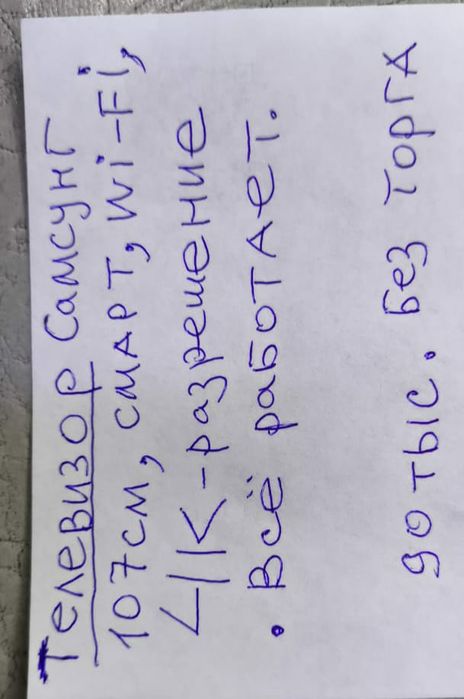 Телевизор Самсунг
107см, смарт, Wi-Fi,
4K-разрешение
. Всё работает.
90 тыс. Без торга